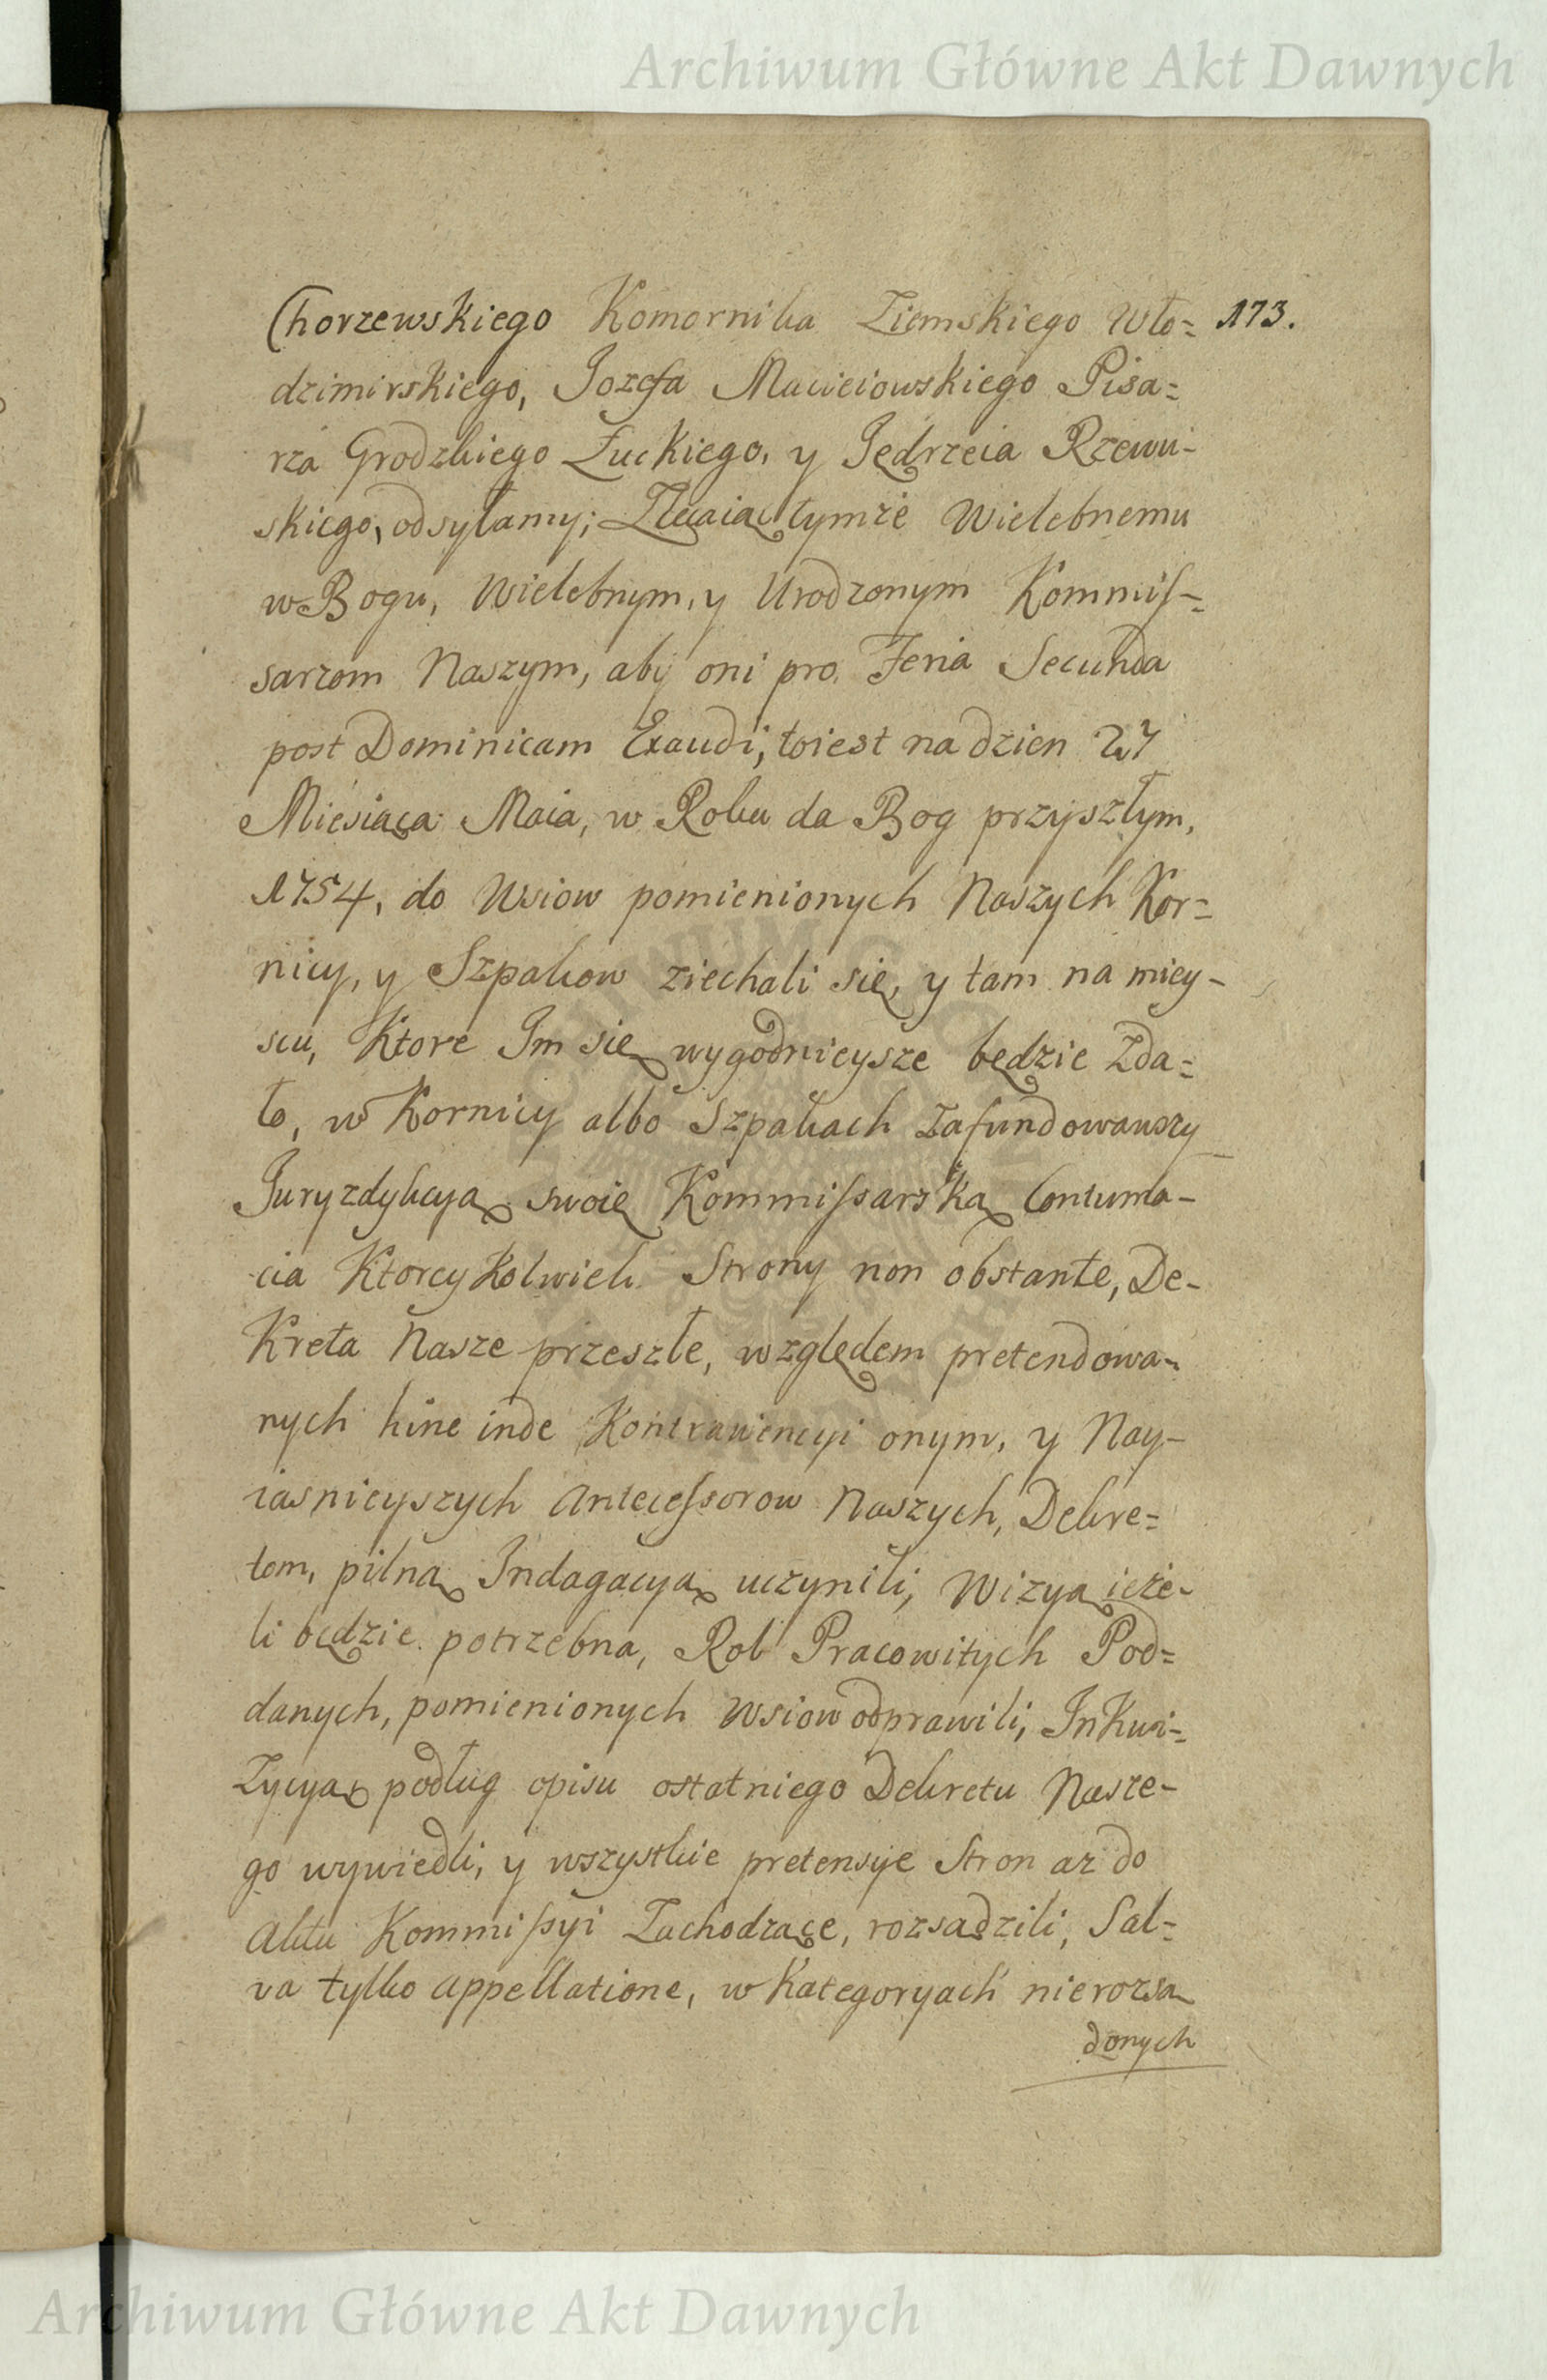 Archiwum Główne Akt Dawnych
Chorzewskiego Komornika Ziemskiego Wło= 173.
dzimirskiego, Jozefa Macieiowskiego Pisa=
rza Grodzkiego Łuckiego, y Jędrzeia Rzewu-
skiego, odsyłamy; Zlecaiąc tymże Wielebnemu
w Bogu, Wielebnym, y Urodzonym Kommis=
sarzom Naszym, aby oni pro Feria Secunda
post Dominicam Exaudi, toiest na dzien 27
Miesiąca Maia, w Roku da Bog przyszłym,
1754, do Wsiow pomienionych Naszych Kor=
nicy, y Szpakow ziechali się, y tam na miey-
scu, Ktore Im się wygodnieysze będzie zda=
ło, w Kornicy albo Szpakach zafundowawszy
Juryzdykcyą swoię Kommissarską Contuma-
cia Ktoreykolwiek Strony non obstante, De-
Kreta Nasze przeszłe, względem pretendowa-
nych hinc inde Kontrawencyi onym, y Nay-
iasnieyszych Antecessorow Naszych, Dekre=
tom, pilną Indagacyą uczynili, Wizyą ieże-
li będzie potrzebna, Rol Pracowitych Pod=
danych, pomienionych Wsiow odprawili, Inkwi=
zycyą podług opisu ostatniego Dekretu Nasze-
go wywiedli, y wszystkie pretensye Stron az do
Aktu Kommissyi Zachodzące, rozsądzili, Sal=
va tylko appellatione, w Kategoryach nierozsą
dzonych
Archiwum Główne Akt Dawnych